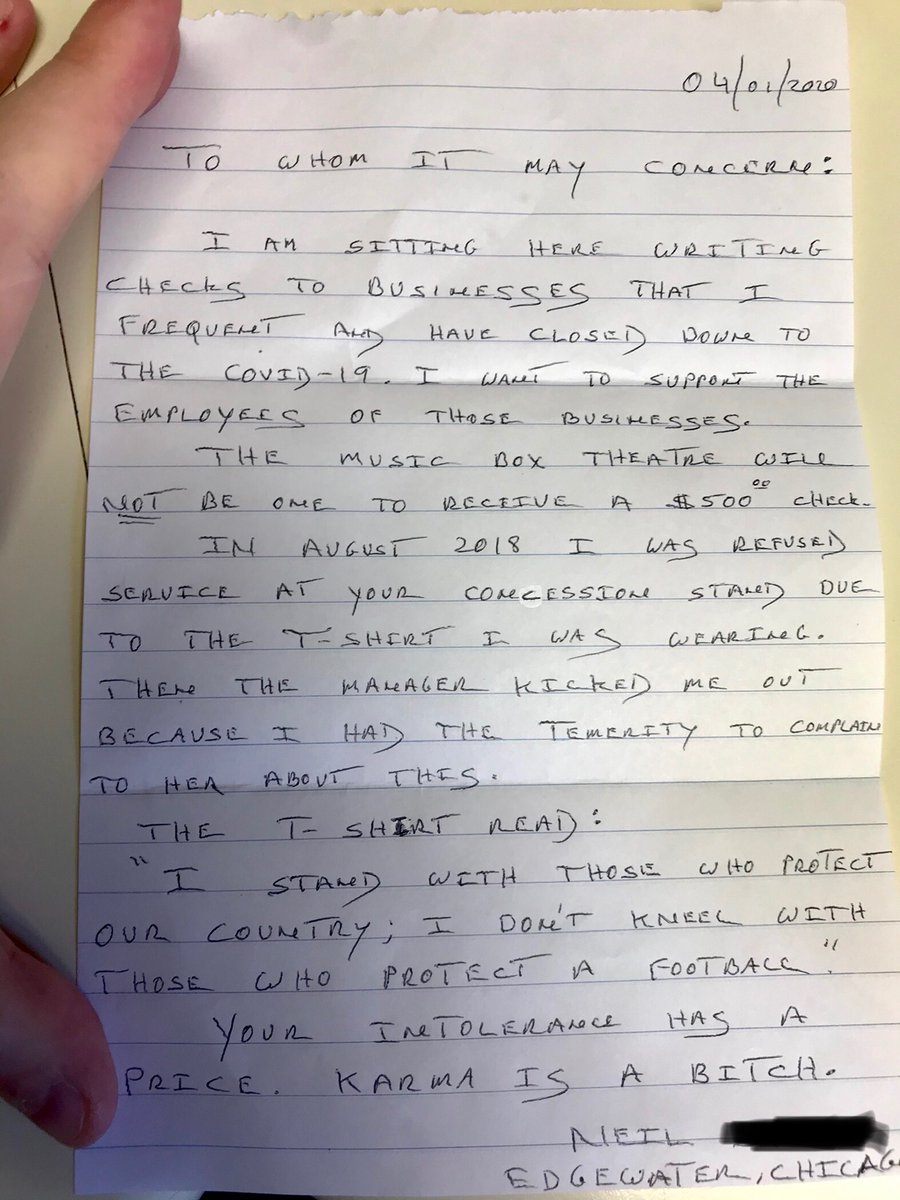 04/01/2020
TO WHOM IT MAY CONCERN:
I AM SITTING HERE WRITING
CHECKS TO BUSINESSES THAT I
FREQUENT AND HAVE CLOSED DOWN TO
THE COVID-19. I WANT TO SUPPORT THE
EMPLOYEES OF THOSE BUSINESSES.
THE MUSIC BOX THEATRE WILL
NOT BE ONE TO RECEIVE A $500.00 CHECK.
IN AUGUST 2018 I WAS REFUSED
SERVICE AT YOUR CONCESSION STAND DUE
TO THE T-SHIRT I WAS WEARING.
THEN THE MANAGER KICKED ME OUT
BECAUSE I HAD THE TEMERITY TO COMPLAIN
TO HER ABOUT THIS.
THE T-SHIRT READ:
"I STAND WITH THOSE WHO PROTECT
OUR COUNTRY; I DON'T KNEEL WITH
THOSE WHO PROTECT A FOOTBALL."
YOUR INTOLERANCE HAS A
PRICE. KARMA IS A BITCH.
NEIL
EDGEWATER, CHICAG